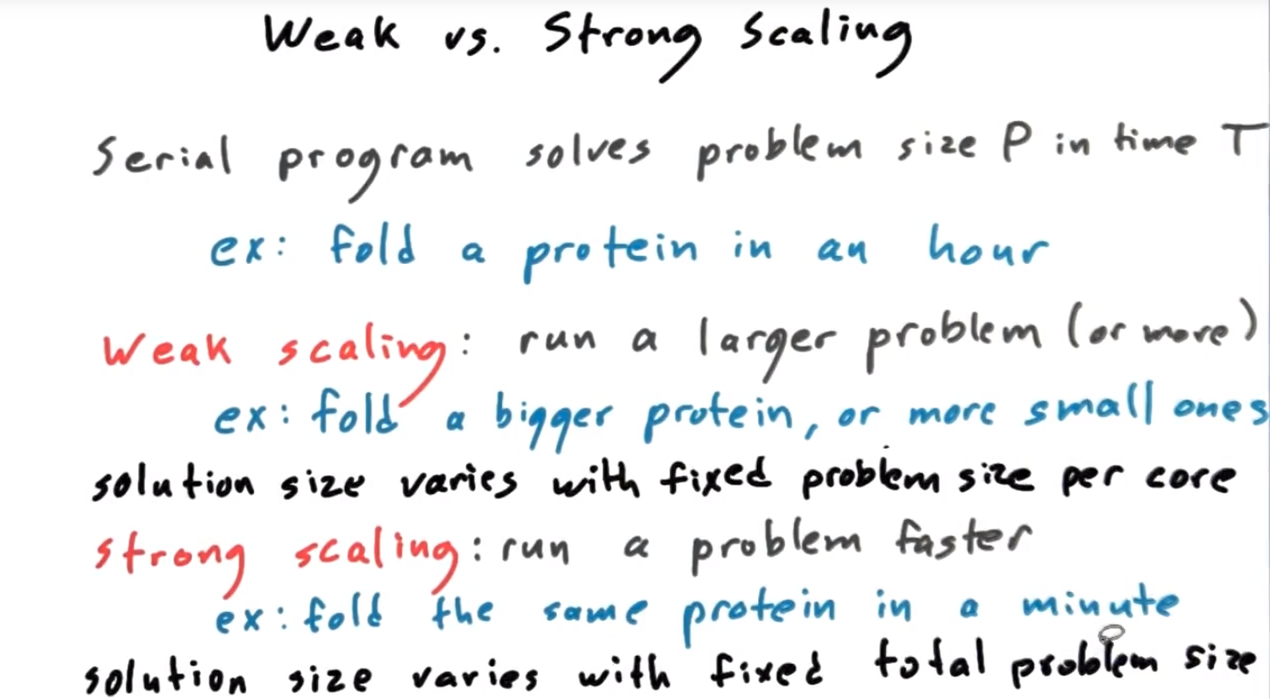 Weak vs. Strong Scaling
Serial program solves problem size P in time T
ex: fold a protein in an hour
Weak scaling: run a larger problem (or more)
ex: fold a bigger protein, or more small ones
solution size varies with fixed problem size per core
strong scaling: run a problem faster
ex: fold the same protein in a minute
solution size varies with fixed total problem size